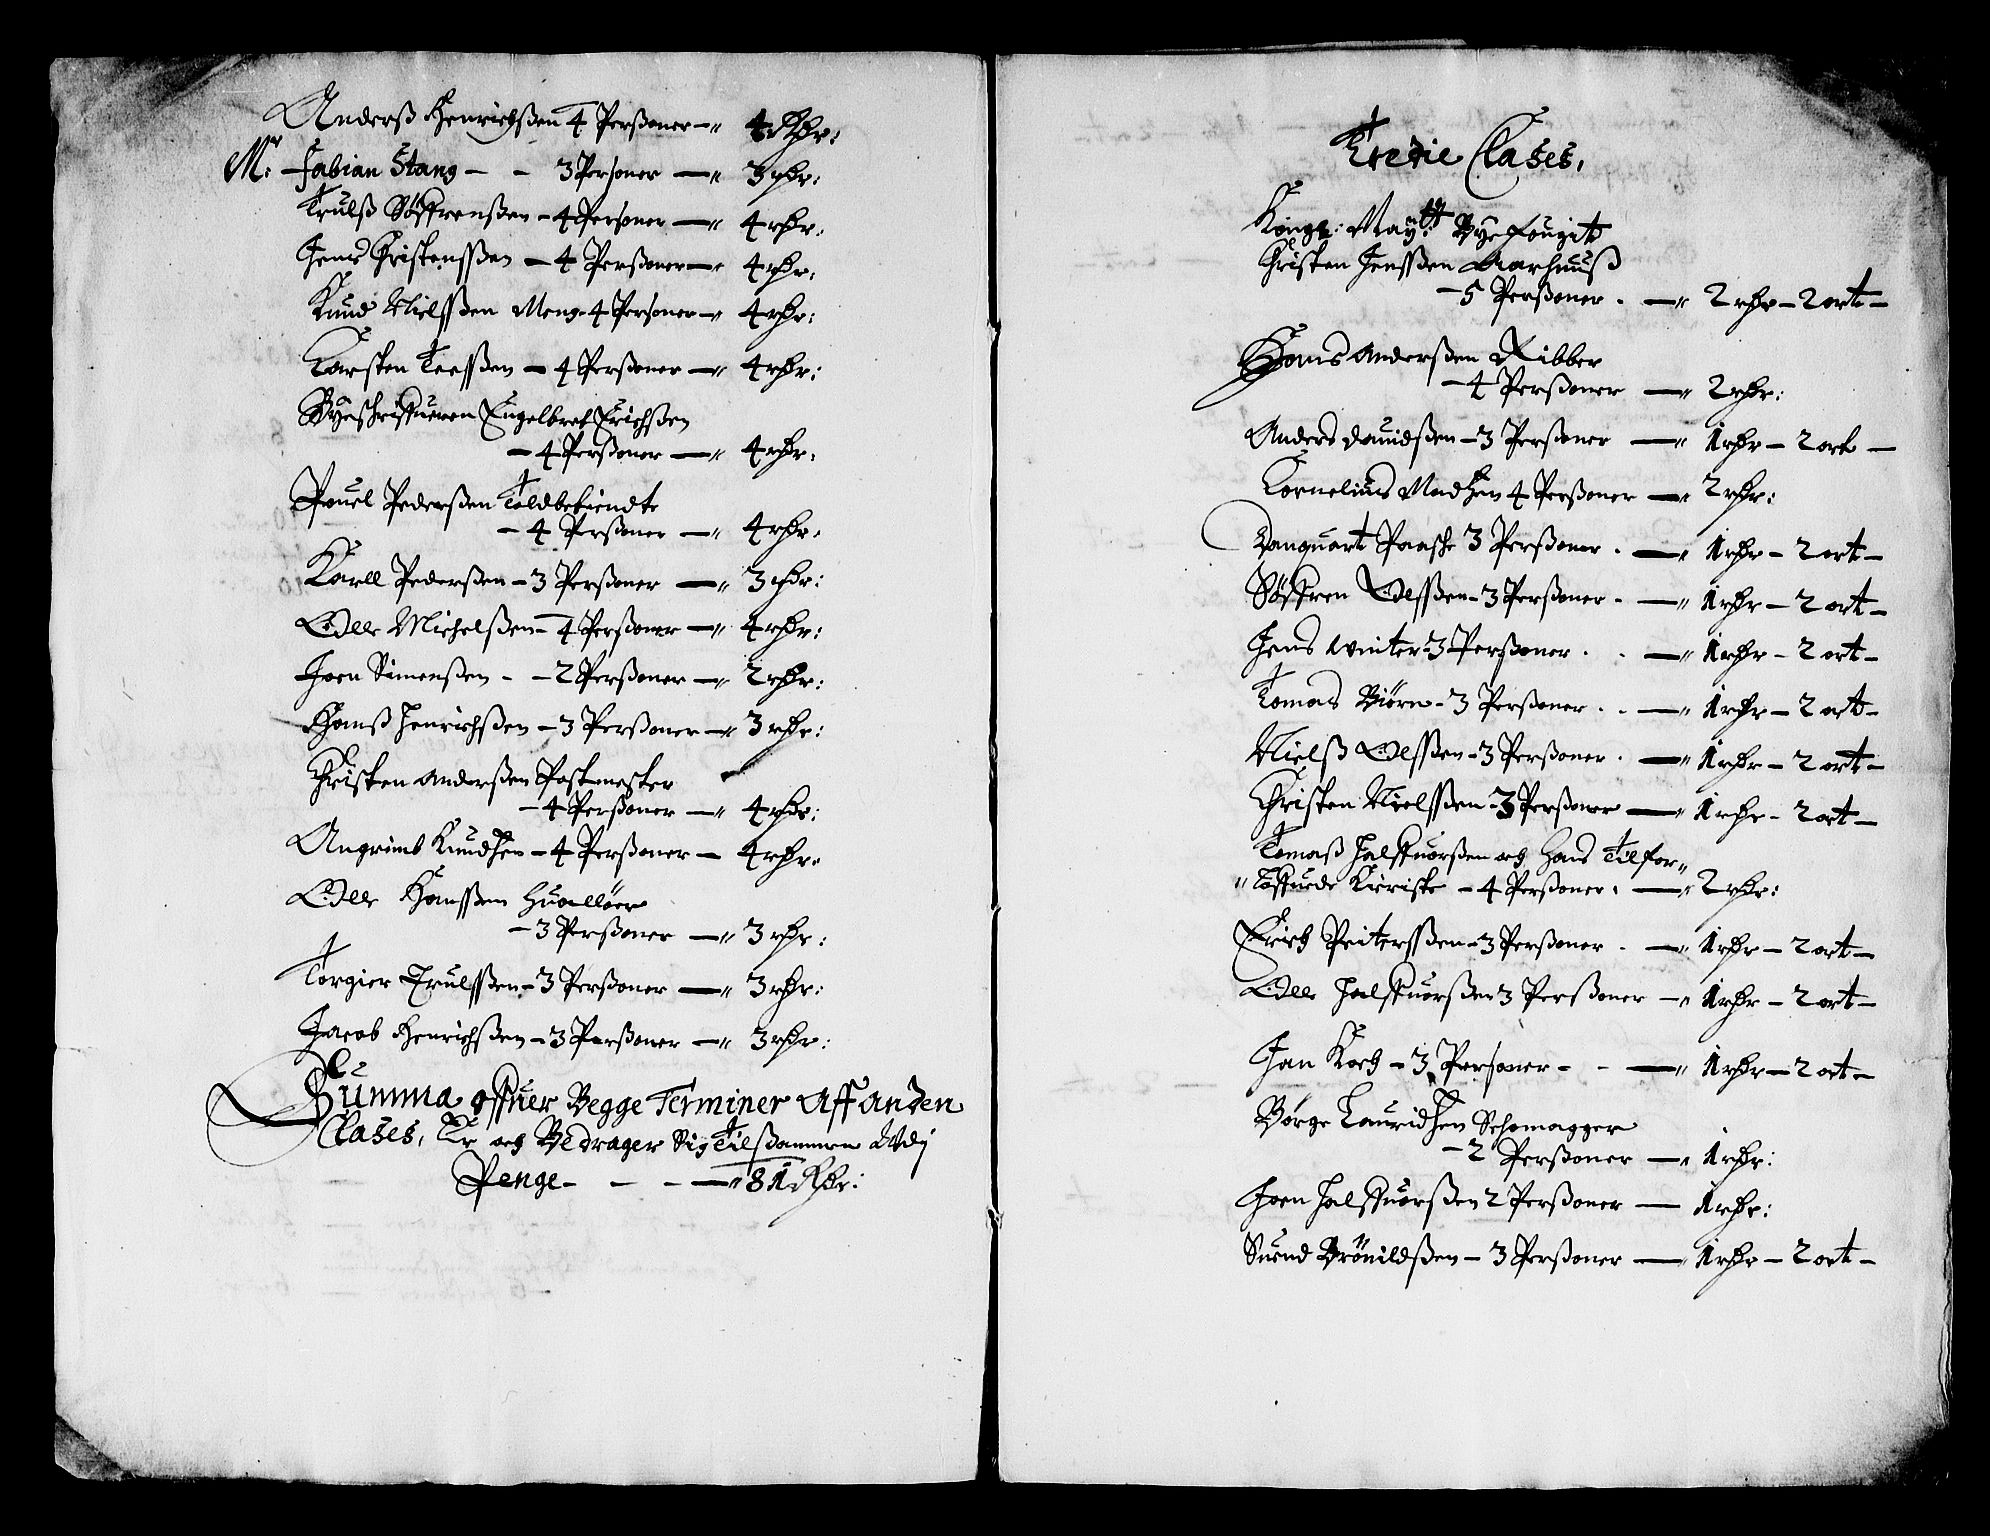 Anderß Henrichßen 4 Perßoner — 4 Rdr:
Mr: Fabian Stang — - 3 Personer — 3 rdr:
Trulß Søffrenßen - 4 Personer — 4 rdr:
Jens Christenßen — 4 Perßoner — 4 rdr:
Knud Nielßen Meng - 4 Personer — 4 rdr:
Karsten Teeßen — 4 Perßoner — 4 rdr:
Byeschriffueren Engelbret Erichßen
— 4 Perßoner — 4 rdr:
Pouel Pederßen Toldbetiendte
- 4 Perßoner — 4 rdr:
Karll Pederßen - 3 Perßoner — 3 rdr:
Olle Michelßen - 4 Perßoner — 4 rdr:
Joen Simenßen - - 2 Perßoner — 2 rdr:
Hanß Henrichßen - 3 Perßoner — 3 rdr:
Christen Anderßen Postmester
- 4 Perßoner — 4 rdr:
Angrimb Knudßen - 4 Perßoner — 4 rdr:
Olle Hanßen Hualløer
- 3 Perßoner — 3 rdr:
Torgier Trulßen - 3 Perßoner — 3 rdr:
Jacob Henrichßen - 3 Perßoner — 3 rdr:
Summa offuer Begge Terminer Aff Anden
Clases, Er och Bedrager Sig Tilßammen Udj
Penge - - - — 81 Rdr:
Tredie Clases,
Kongl: Maytt: Byefougit
Christen Jenßen Aarhuuß
- 5 Perßoner . — 2 rdr - 2 ort -
Hans Anderßen Ribber
- 4 Perßoner — 2 rdr:
Anders Dauidßen - 3 Perßoner — 1 rdr - 2 ort -
Cornelius Madßen 4 Perßoner — 2 rdr:
Danquart Paasche 3 Perßoner . — 1 rdr - 2 ort -
Søffren Olßen - 3 Perßoner . — 1 rdr - 2 ort -
Jens Winter - 3 Perßoner . . — 1 rdr - 2 ort -
Tomas Biørn - 3 Perßoner . . — 1 rdr - 2 ort -
Nielß Olßen - 3 Perßoner . — 1 rdr - 2 ort -
Christen Nielßen - 3 Perßoner — 1 rdr - 2 ort -
Tomaß Halffuorßen och Hans Tilfor-
Toffuede - 4 Perßoner . — 2 rdr:
Erich Peiterßen - 3 Perßoner . — 1 rdr - 2 ort -
Olle Halffuorßen 3 Perßoner — 1 rdr - 2 ort -
Jan Koch - 3 Personer - - — 1 rdr - 2 ort -
Børge Lauridßen Schomagger
- 2 Perßoner — 1 rdr:
Joen Halffuorßen 2 Perßoner — 1 rdr:
Suend Brönildßen - 3 Perßoner — 1 rdr - 2 ort -